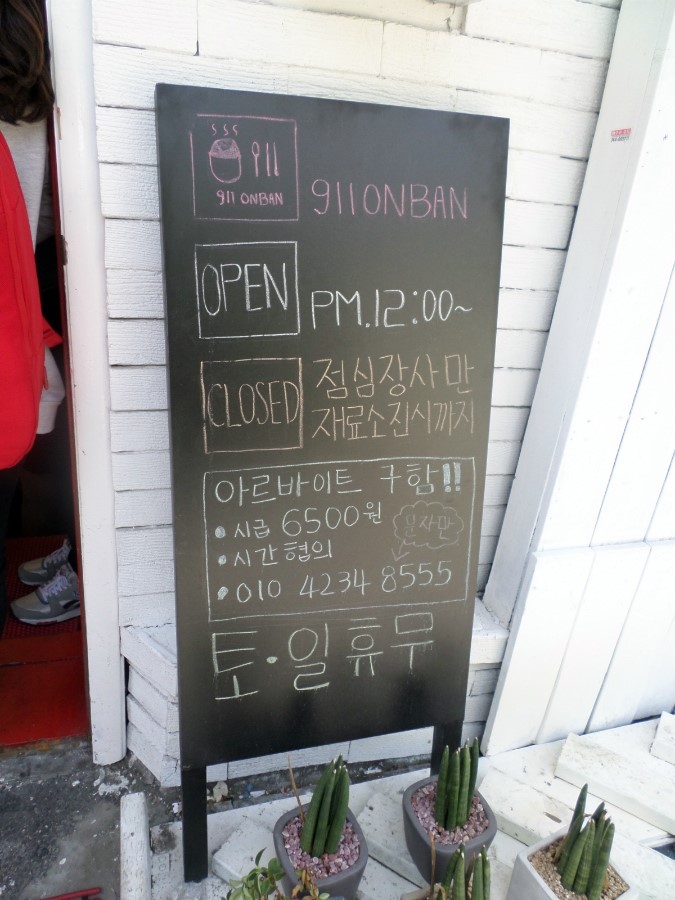 911
911 ONBAN
911 ONBAN
OPEN
PM.12:00~
CLOSED
점심장사만
재료소진시까지
아르바이트 구함!!
• 시급 6500원
• 시간협의
문자만
• 010 4234 8555
토·일휴무